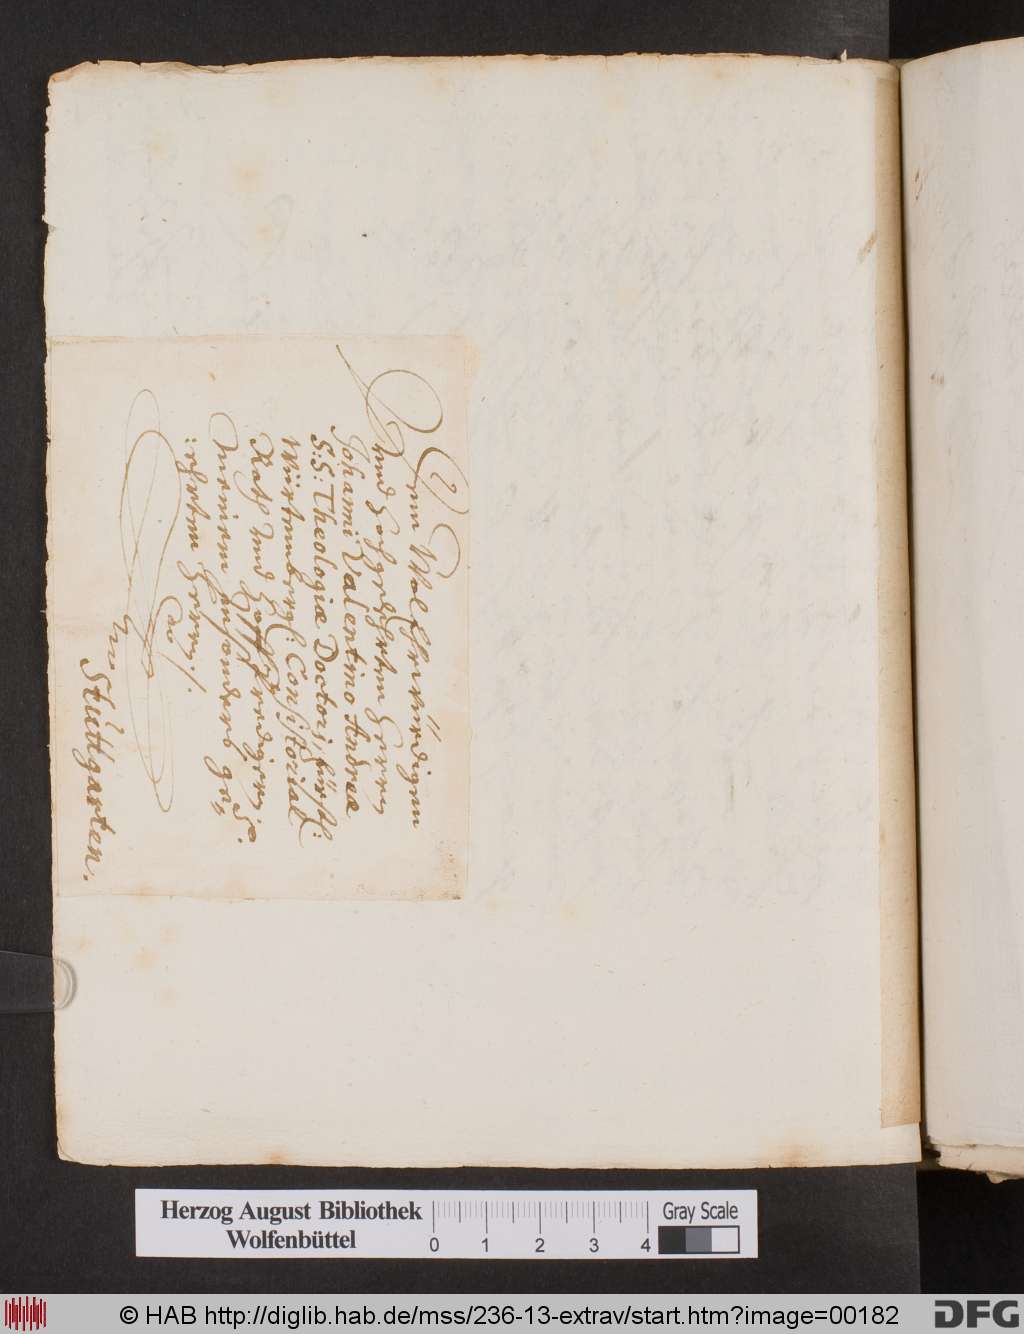 Dem Wol Ehrwürdigen
Unnd Hochgelehrten Herrn
Johanni Valentino Andreæ
S: S: Theologiæ Doctori, fürstl:
Würtembergl: Consistorial
Rath Unnd Hoffpredigern,
Meinem insonders ge„
:ehrten Herrn ./.
Stuttgarten.
Herzog August Bibliothek
Wolfenbüttel
0 1 2 3 4
Gray Scale
© HAB http://diglib.hab.de/mss/236-13-extrav/start.htm?image=00182
DFG